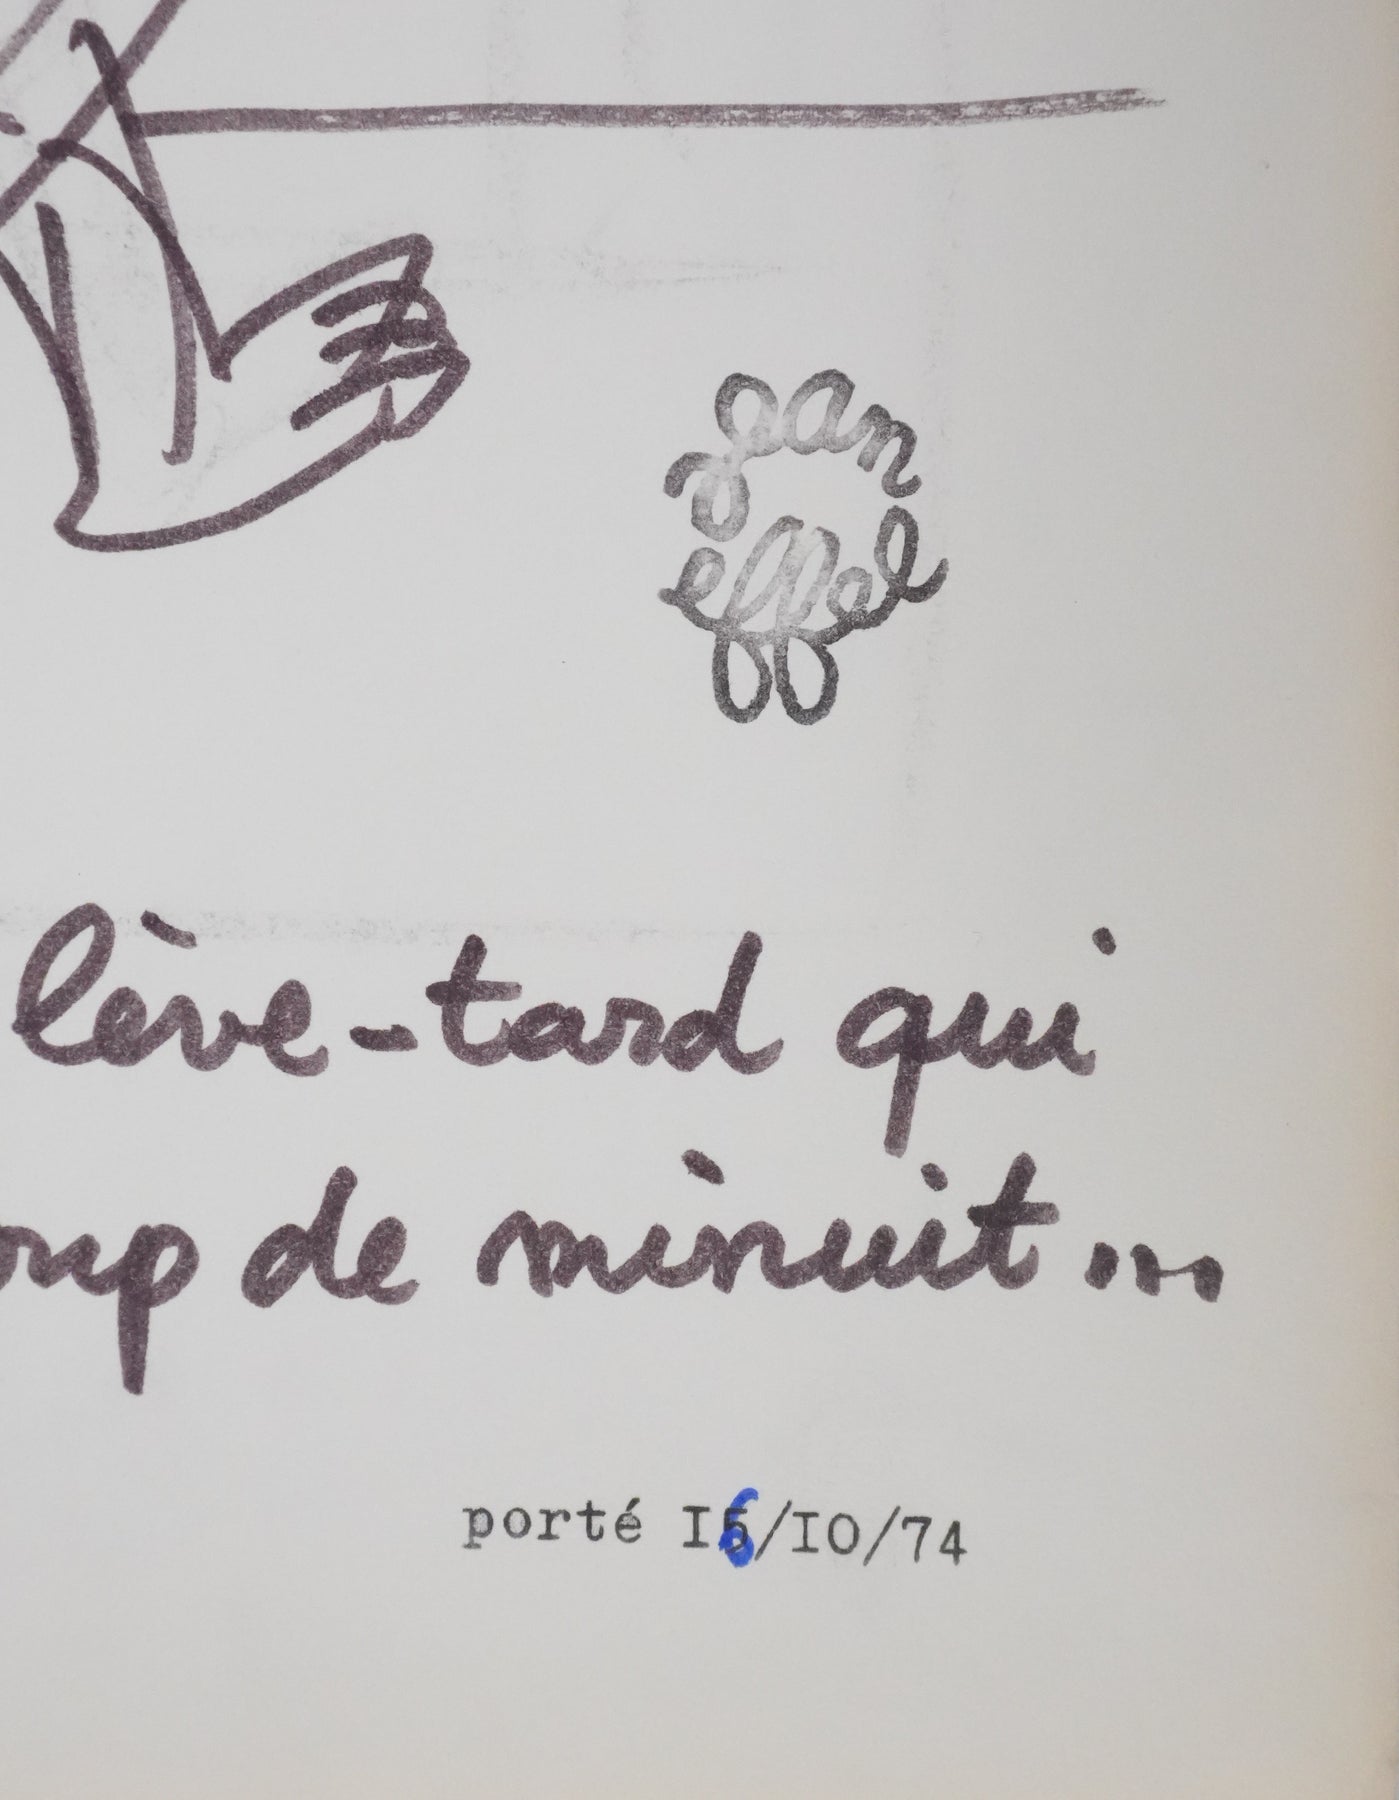 jean
effel
lève-tard qui
oup de minuit...
porté I6/IO/74